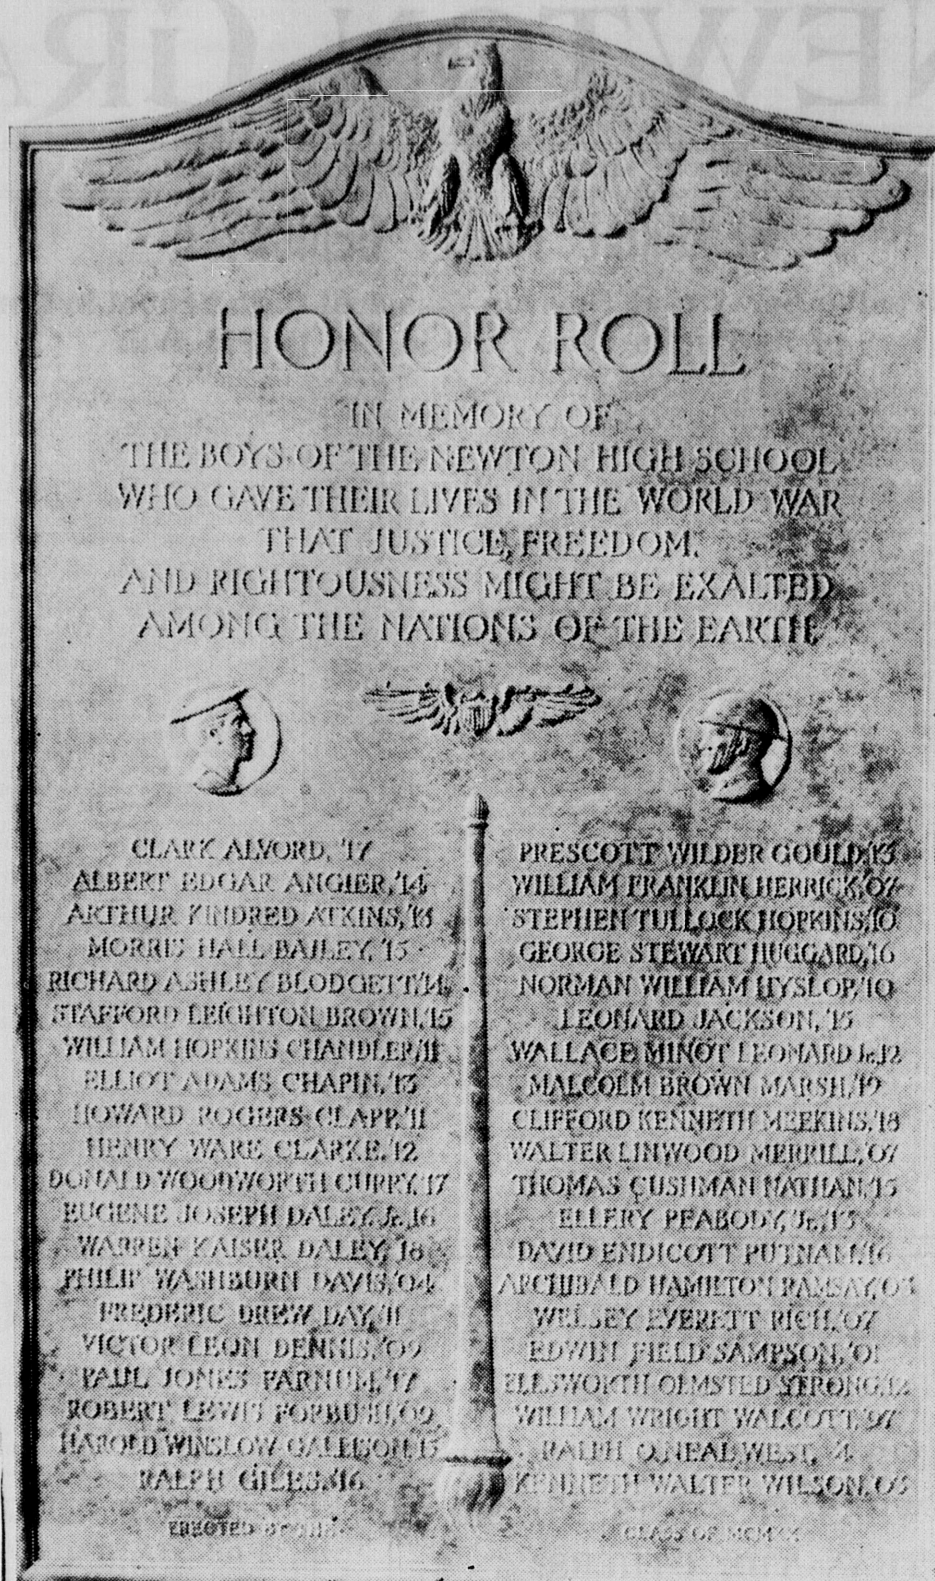 HONOR ROLL
IN MEMORY OF
THE BOYS OF THE NEWTON HIGH SCHOOL
WHO GAVE THEIR LIVES IN THE WORLD WAR
THAT JUSTICE, FREEDOM,
AND RIGHTOUSNESS MIGHT BE EXALTED
AMONG THE NATIONS OF THE EARTH.
CLARK ALVORD, '17
ALBERT EDGAR ANGIER, '14
ARTHUR KINDRED ATKINS,
MORRIS HALL BAILEY, '15
RICHARD ASHLEY BLODGETT, '14
STAFFORD LEIGHTON BROWN, '15
WILLIAM HOPKINS CHANDLER, '11
ELLIOT ADAMS CHAPIN, '13
HOWARD ROGERS CLAPP, '11
HENRY WARE CLARKE, '12
DONALD WOODWORTH CURRY, '17
EUGENE JOSEPH DALEY, Jr., '16
WARREN KAISER DALEY, '18
PHILIP WASHBURN DAVIS, '04
FREDERIC DREW DAY, '11
VICTOR LEON DENNIS, '09
PAUL JONES FARNUM, '17
ROBERT LEWIS FORBUSH, '09
HAROLD WINSLOW GALLISON,
RALPH GILES, '16
PRESCOTT WILDER GOULD, '13
WILLIAM FRANKLIN HERRICK, '07
STEPHEN TULLOCK HOPKINS, '10
GEORGE STEWART HUGGARD, '16
NORMAN WILLIAM HYSLOP, '10
LEONARD JACKSON, '15
WALLACE MINOT LEONARD Jr., '12
MALCOLM BROWN MARSH, '19
CLIFFORD KENNETH MEEKINS, '18
WALTER LINWOOD MERRILL, '07
THOMAS CUSHMAN NATHAN, '15
ELLERY PEABODY, Jr., '13
DAVID ENDICOTT PUTNAM, '16
ARCHIBALD HAMILTON RAMSAY,
WELSEY EVERETT RICH, '07
EDWIN FIELD SAMPSON, '01
ELLSWORTH OLMSTED STRONG, '12
WILLIAM WRIGHT WALCOTT, '97
RALPH O'NEAL WEST,
KENNETH WALTER WILSON,
ERECTED BY THE
CLASS OF